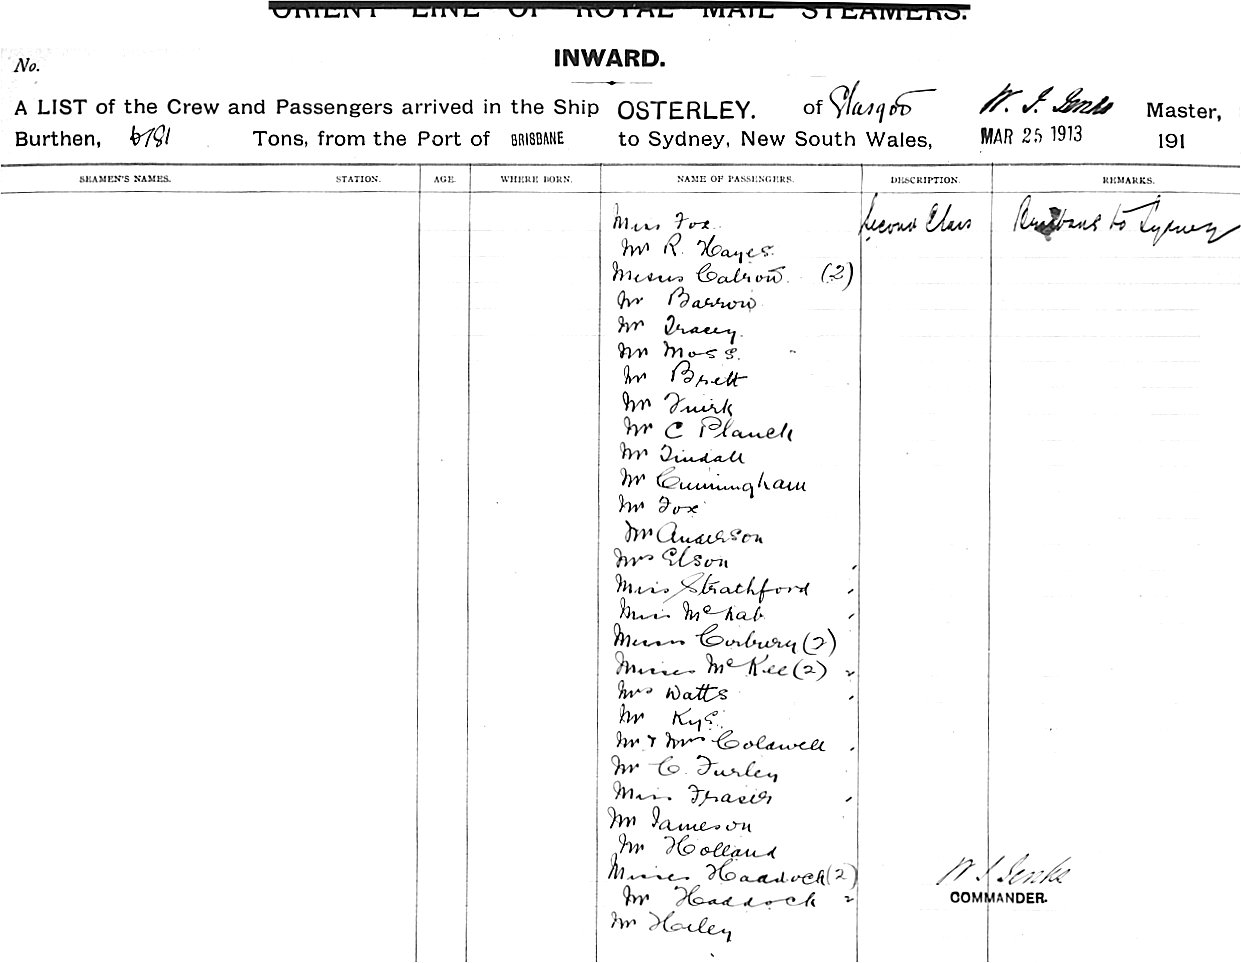 ORIENT LINE OF ROYAL MAIL STEAMERS.
INWARD.
No.
A LIST of the Crew and Passengers arrived in the Ship OSTERLEY. of Glasgow W. J. Jenks Master,
Burthen, 6781 Tons, from the Port of BRISBANE to Sydney, New South Wales, MAR 25 1913 191
SEAMEN'S NAMES. STATION. AGE. WHERE BORN. NAME OF PASSENGERS. DESCRIPTION. REMARKS.
Miss Fox Second Class Brisbane to Sydney
Mr R. Hayes
Messrs (2)
Mr Barrow
Mr Tracey
Mr Moss
Mr Brett
Mr
Mr C Planck
Mr Tindall
Mr Cunningham
Mr Fox
Mr Anderson
Mrs Elson
Miss Strathford
Miss McNab
Corbury (2)
Misses McKee (2)
Mrs Watts
Mr Kye
Mr & Mrs Coldwell
Mr C. Furley
Miss Fraser
Mr Jameson
Mr Holland
Misses Haddock (2)
Mr Haddock
Mr Hoiley
W J Jenks
COMMANDER.